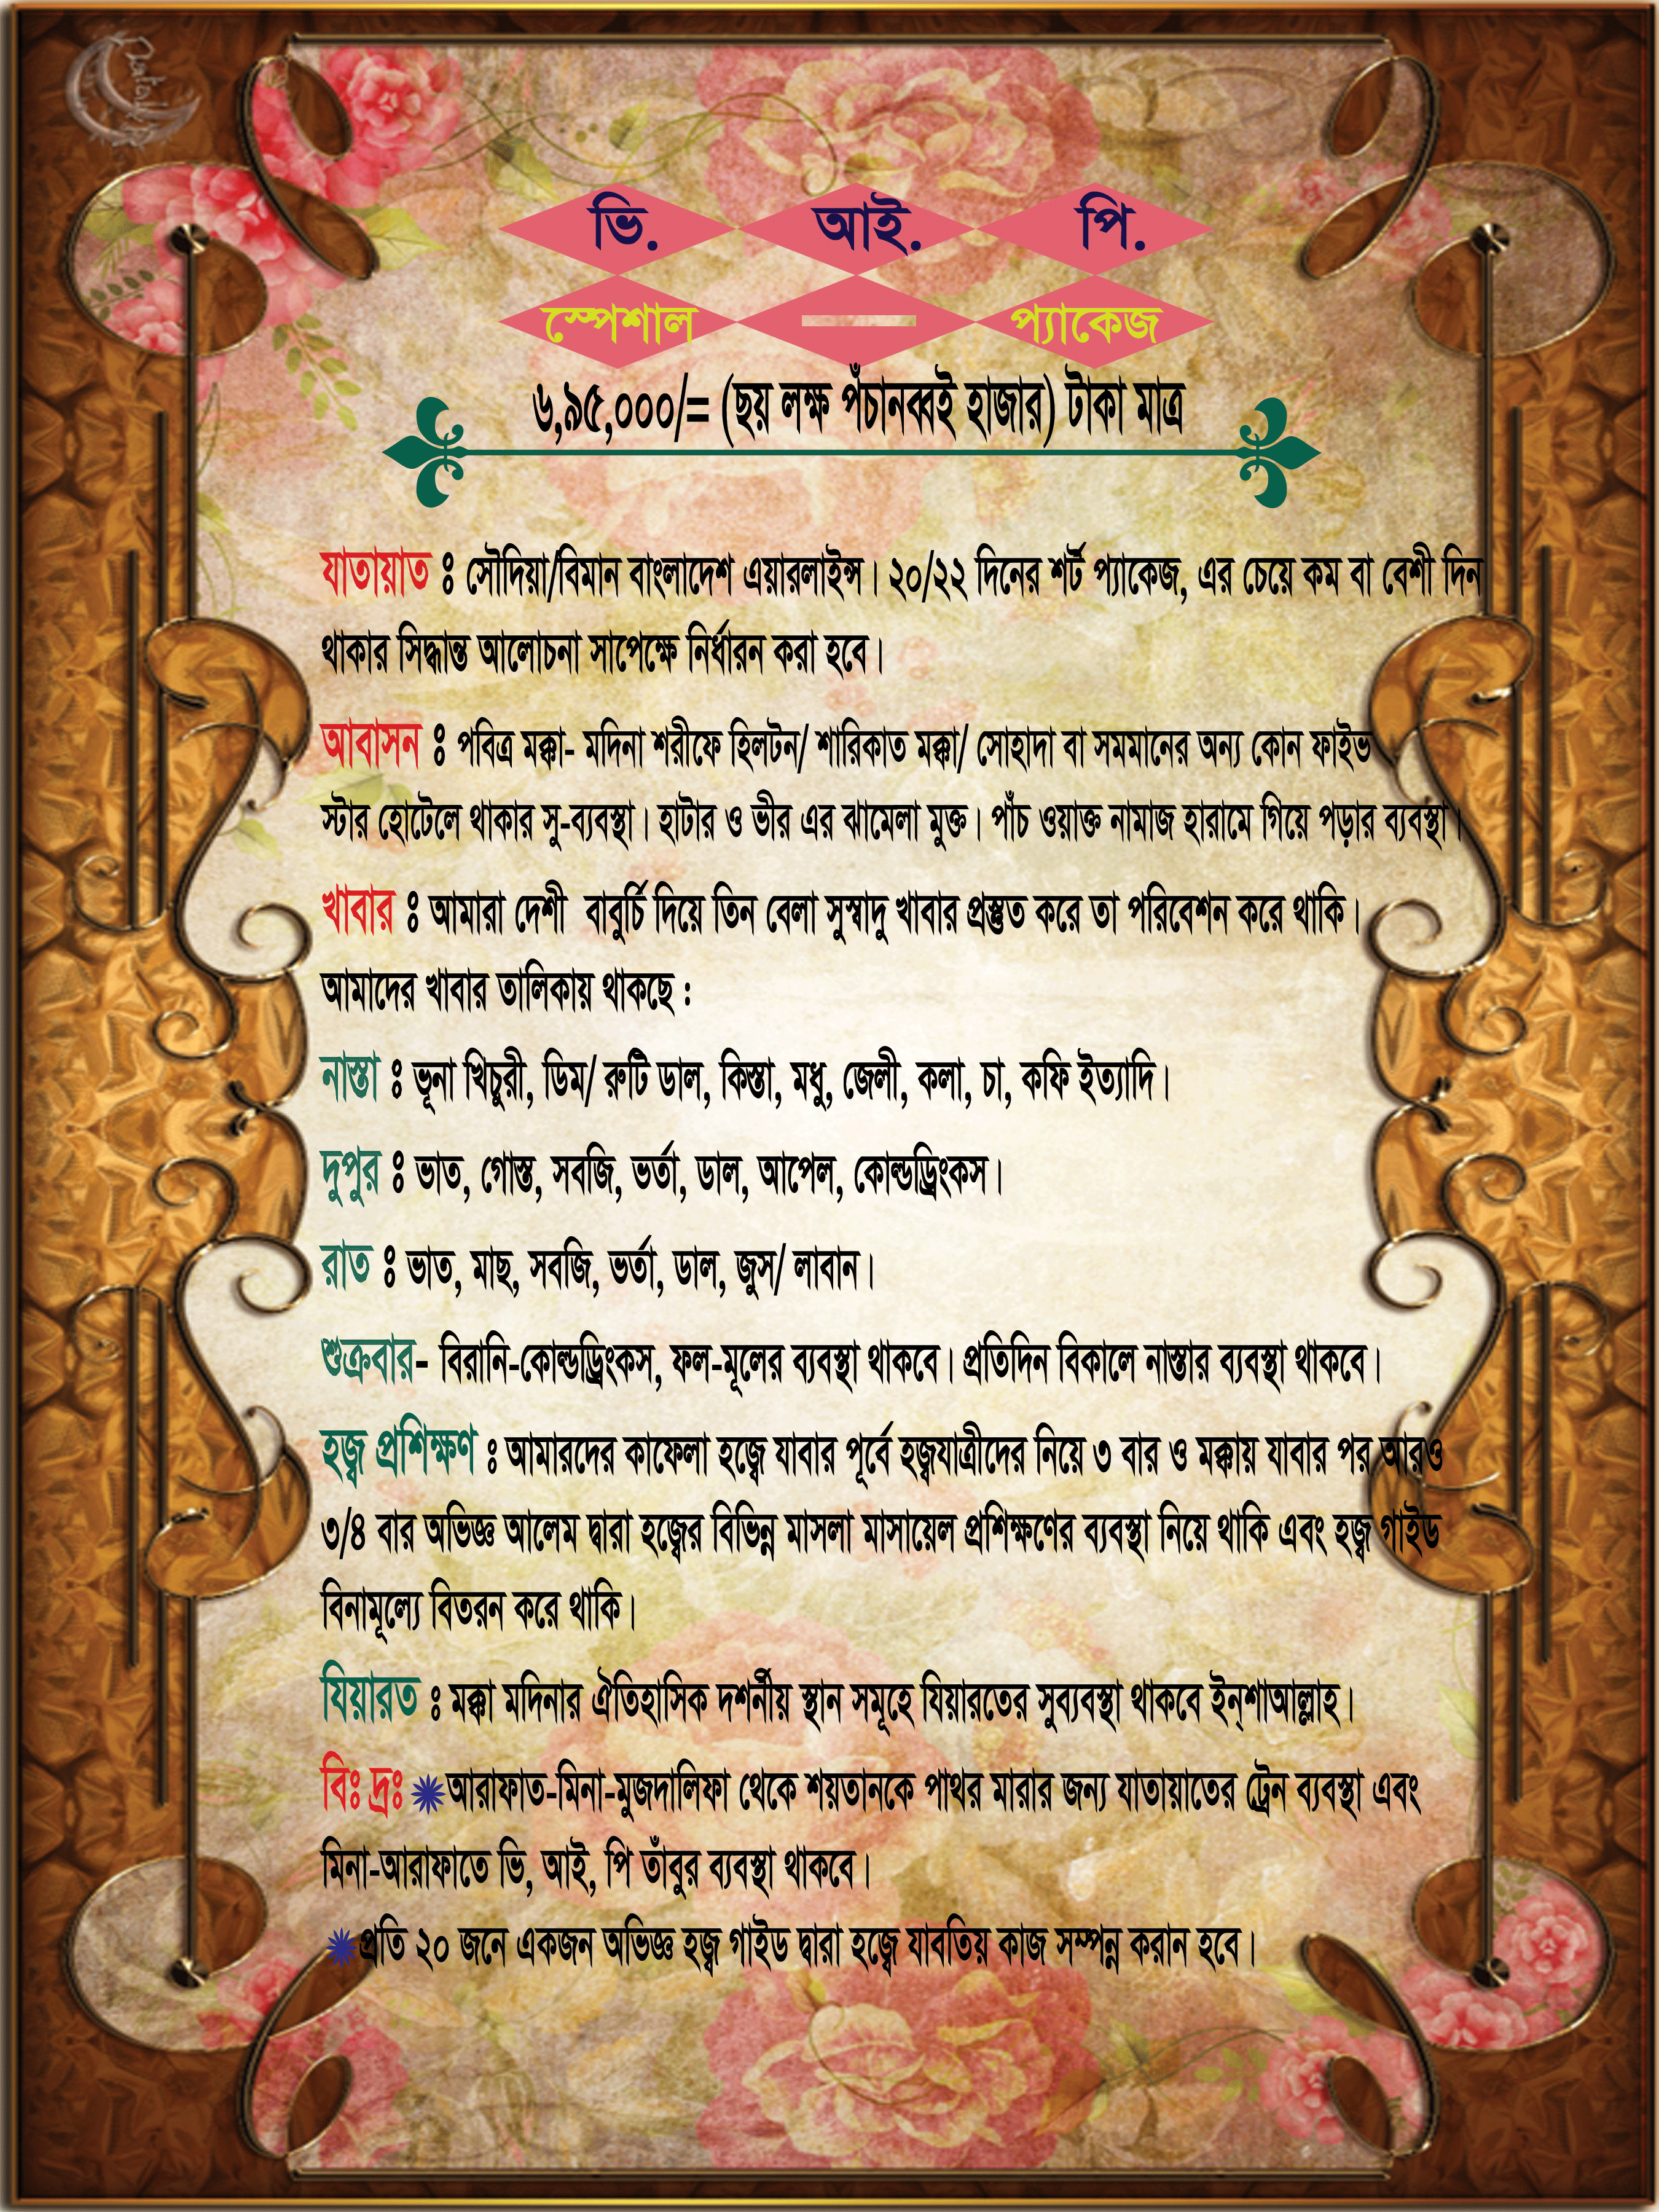 ভি. আই. পি.
স্পেশাল — প্যাকেজ
৬,৯৫,০০০/= (ছয় লক্ষ পঁচানব্বই হাজার) টাকা মাত্র
যাতায়াত ঃ সৌদিয়া/বিমান বাংলাদেশ এয়ারলাইন্স। ২০/২২ দিনের শর্ট প্যাকেজ, এর চেয়ে কম বা বেশী দিন
থাকার সিদ্ধান্ত আলোচনা সাপেক্ষে নির্ধারন করা হবে।
আবাসন ঃ পবিত্র মক্কা- মদিনা শরীফে হিলটন/ শারিকাত মক্কা/ সোহাদা বা সমমানের অন্য কোন ফাইভ
স্টার হোটেলে থাকার সু-ব্যবস্থা। হাটার ও ভীর এর ঝামেলা মুক্ত। পাঁচ ওয়াক্ত নামাজ হারামে গিয়ে পড়ার ব্যবস্থা।
খাবার ঃ আমারা দেশী বাবুর্চি দিয়ে তিন বেলা সুস্বাদু খাবার প্রস্তুত করে তা পরিবেশন করে থাকি।
আমাদের খাবার তালিকায় থাকছে :
নাস্তা ঃ ভূনা খিচুরী, ডিম/ রুটি ডাল, কিস্তা, মধু, জেলী, কলা, চা, কফি ইত্যাদি।
দুপুর ঃ ভাত, গোস্ত, সবজি, ভর্তা, ডাল, আপেল, কোল্ডড্রিংকস।
রাত ঃ ভাত, মাছ, সবজি, ভর্তা, ডাল, জুস/ লাবান।
শুক্রবার- বিরানি-কোল্ডড্রিংকস, ফল-মূলের ব্যবস্থা থাকবে। প্রতিদিন বিকালে নাস্তার ব্যবস্থা থাকবে।
হজ্ব প্রশিক্ষণ ঃ আমারদের কাফেলা হজ্বে যাবার পূর্বে হজ্বযাত্রীদের নিয়ে ৩ বার ও মক্কায় যাবার পর আরও
৩/৪ বার অভিজ্ঞ আলেম দ্বারা হজ্বের বিভিন্ন মাসলা মাসায়েল প্রশিক্ষণের ব্যবস্থা নিয়ে থাকি এবং হজ্ব গাইড
বিনামূল্যে বিতরন করে থাকি।
যিয়ারত ঃ মক্কা মদিনার ঐতিহাসিক দর্শনীয় স্থান সমূহে যিয়ারতের সুব্যবস্থা থাকবে ইন্‌শাআল্লাহ।
বিঃ দ্রঃ আরাফাত-মিনা-মুজদালিফা থেকে শয়তানকে পাথর মারার জন্য যাতায়াতের ট্রেন ব্যবস্থা এবং
মিনা-আরাফাতে ভি, আই, পি তাঁবুর ব্যবস্থা থাকবে।
প্রতি ২০ জনে একজন অভিজ্ঞ হজ্ব গাইড দ্বারা হজ্বে যাবতিয় কাজ সম্পন্ন করান হবে।